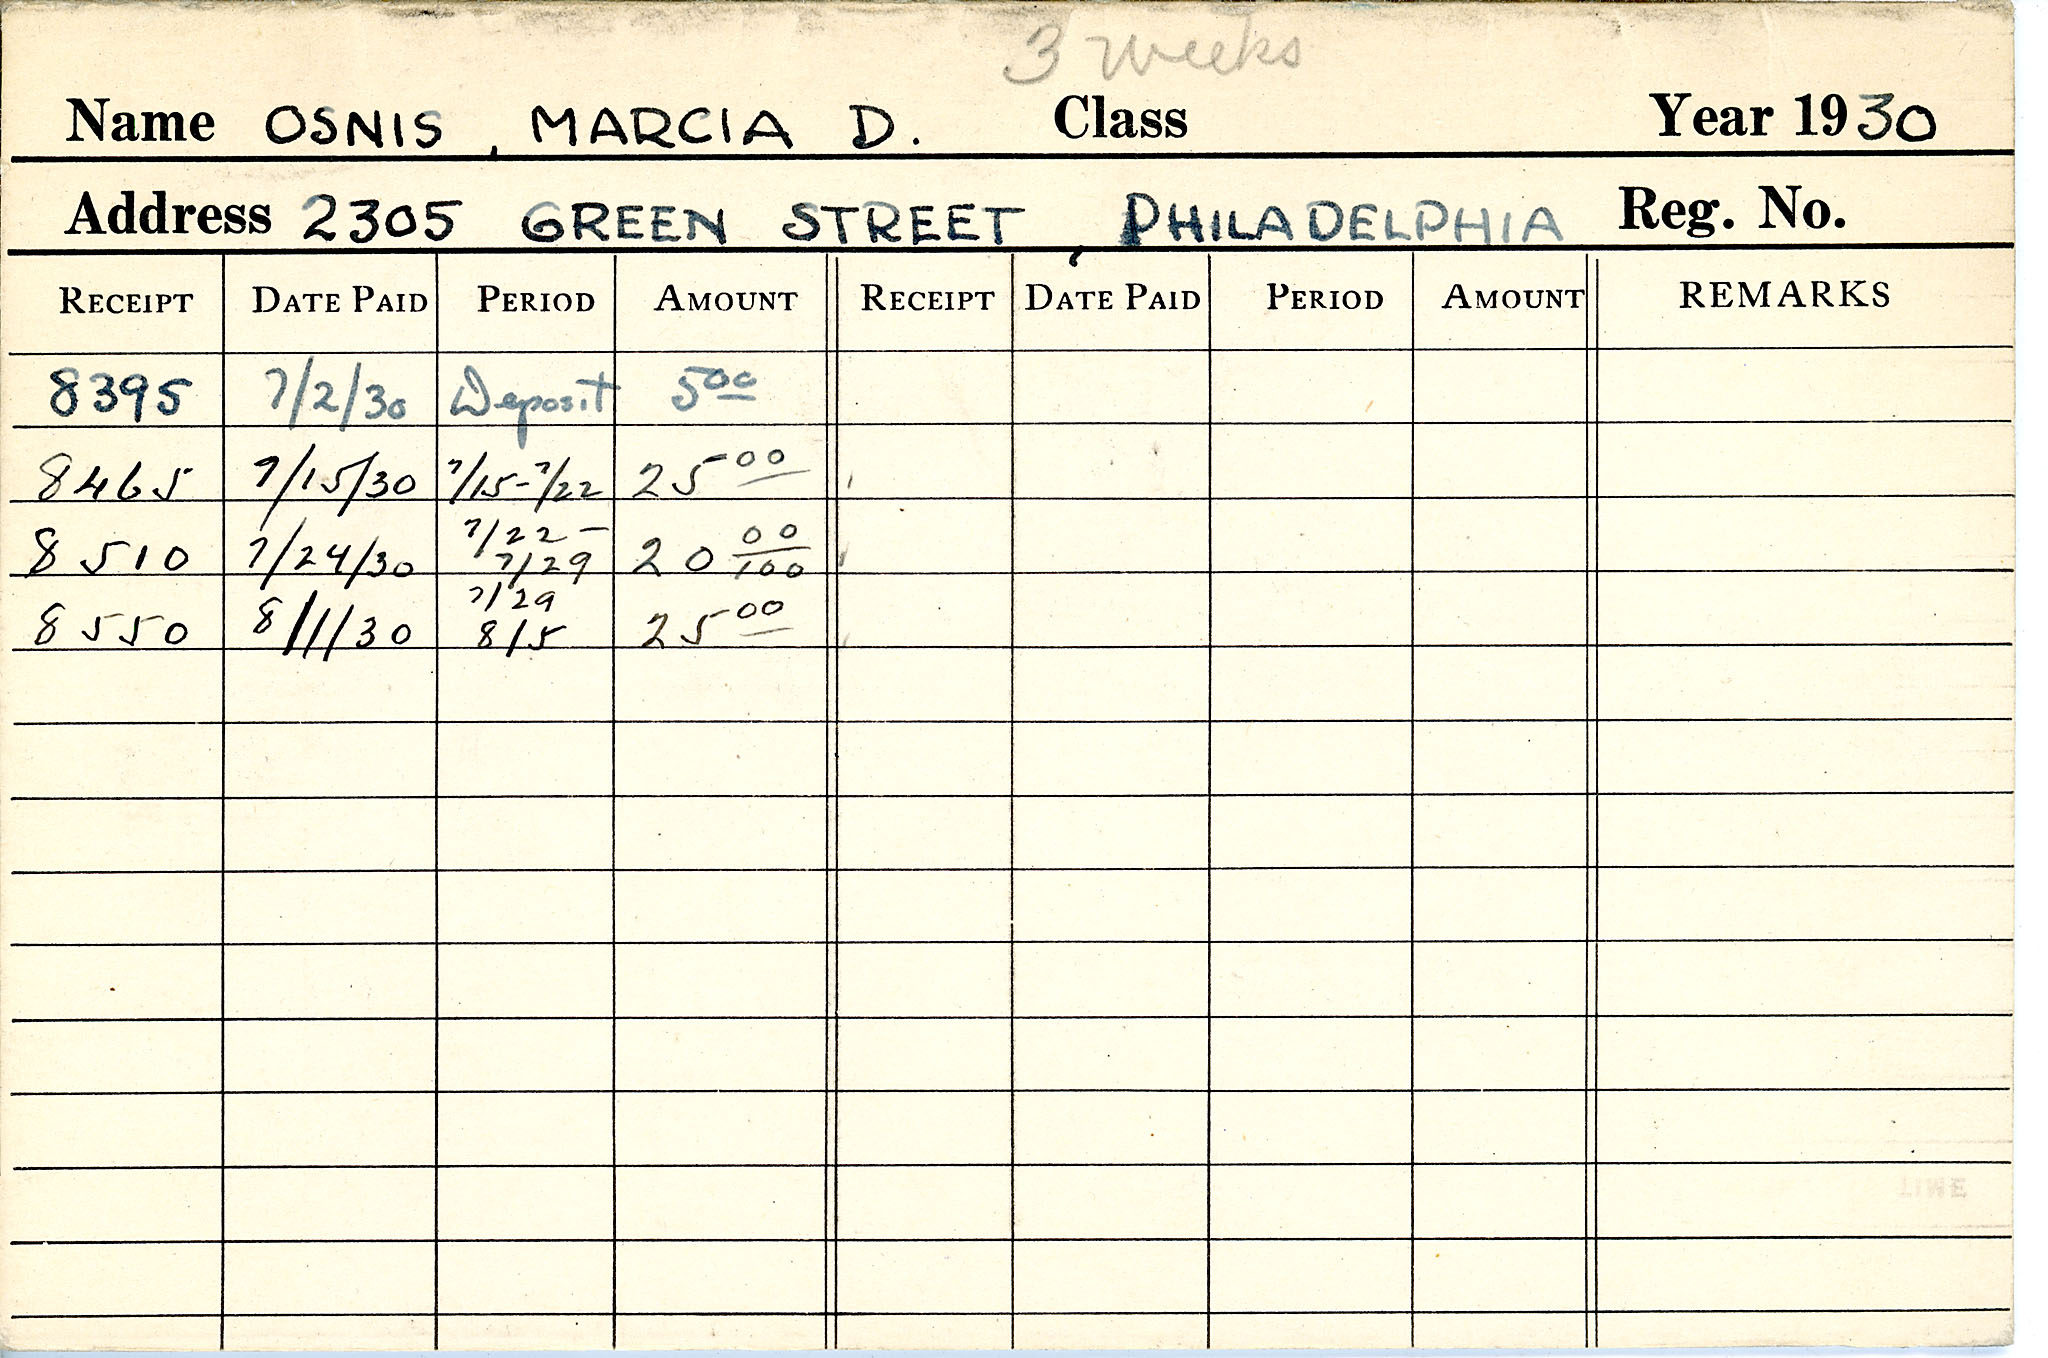 3 weeks
Name OSNIS, MARCIA D. Class Year 1930
Address 2305 GREEN STREET, PHILADELPHIA Reg. No.
RECEIPT DATE PAID PERIOD AMOUNT RECEIPT DATE PAID PERIOD AMOUNT REMARKS
8395 7/2/30 Deposit 5 00
8465 7/15/30 7/15-7/22 25 00
8510 7/24/30 7/22- 7/29 20 00/100
8550 8/1/30 7/29 8/5 25 00